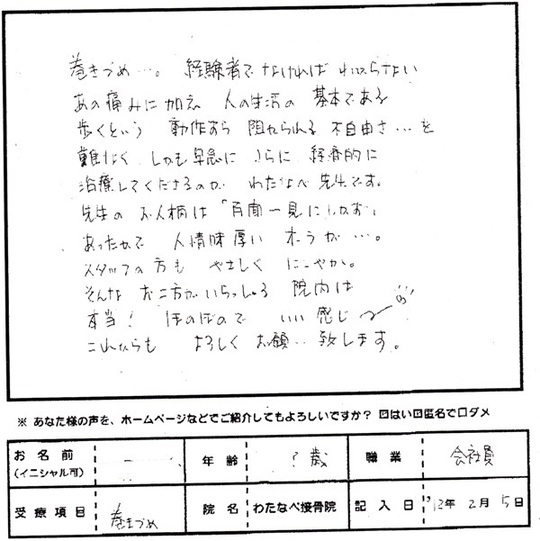 巻きづめ…。経験者でなければわからない
あの痛みに加え 人の生活の 基本である
歩くという 動作すら 阻まれる 不自由さ…を
難なく しかも早急に さらに 経済的に
治療してくださるのが わたなべ先生です。
先生の お人柄は「百聞一見にしかず」
あったかで 人情味厚い ホうが…。
スタッフの方も やさしく にこやか。
そんな お二方がいらっしゃる 院内は
本当! ほのぼので いい感じ〜
これからも よろしく お願い 致します。
※ あなた様の声を、ホームページなどでご紹介してもよろしいですか? ☑はい☑匿名で口ダメ
お名前
(イニシャル可)
年齢 ? 歳
職業 会社員
受療項目 巻きづめ
院名 わたなべ接骨院
記入日 '12年 2月 5日